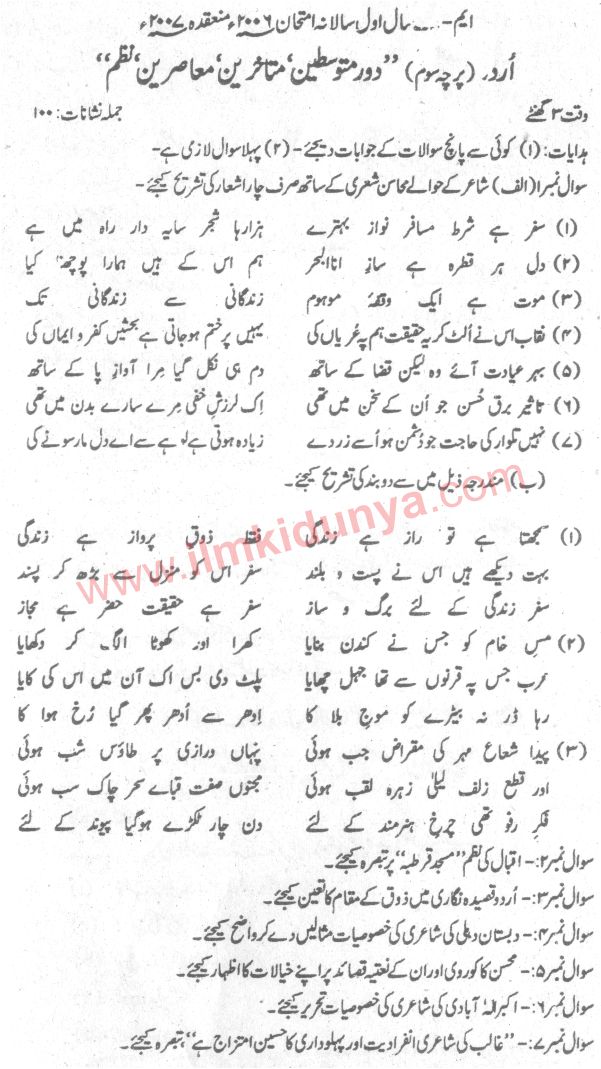 ایم۔۔۔۔ سال اول سالانہ امتحان ۲۰۰۶ء منعقدہ ۲۰۰۷ء
اُردو (پرچہ سوم) ”دور متوسطین‘ متاخرین‘ معاصرین‘ نظم“
وقت ۳ گھنٹے جملہ نشانات: ۱۰۰
ہدایات: (۱) کوئی سے پانچ سوالات کے جوابات دیجئے۔ (۲) پہلا سوال لازمی ہے۔
سوال نمبر۱ (الف) شاعر کے حوالے محاسن شعری کے ساتھ صرف چار اشعار کی تشریح کیجئے۔
(۱) سفر ہے شرط مسافر نواز بہترے ہزارہا شجر سایہ دار راہ میں ہے
(۲) دل ہر قطرہ ہے ساز انا البحر ہم اس کے ہیں ہمارا پوچھنا کیا
(۳) موت ہے ایک وقفۂ موہوم زندگانی سے زندگانی تک
(۴) نقاب اس نے اُلٹ کر یہ حقیقت ہم پہ عُریاں کی یہیں پر ختم ہوجاتی ہے بحثیں کفر و ایماں کی
(۵) بہر عیادت آئے وہ لیکن قضا کے ساتھ دم ہی نکل گیا مِرا آوازِ پا کے ساتھ
(۶) تاثیر برق حُسن جو اُن کے سخن میں تھی اِک لرزشِ خفی مِرے سارے بدن میں تھی
(۷) نہیں تلوار کی حاجت جو دُشمن ہو اُسے زر دے زیادہ ہوتی ہے لوہے سے اے دل مار سونے کی
(ب) مندرجہ ذیل میں سے دو بند کی تشریح کیجئے۔
www.ilmkidunya.com
(۱) سمجھتا ہے تو راز ہے زندگی فقط ذوق پرواز ہے زندگی
بہت دیکھے ہیں اس نے پست و بلند سفر اس کو منزل سے بڑھ کر پسند
سفر زندگی کے لئے برگ و ساز سفر ہے حقیقت حضر ہے مجاز
(۲) مسِ خام کو جس نے کندن بنایا کھرا اور کھوٹا الگ کر دکھایا
عرب جس پہ قرنوں سے تھا جہل چھایا پلٹ دی بس اک آن میں اس کی کایا
رہا ڈر نہ بیڑے کو موجِ بلا کا اِدھر سے اُدھر پھر گیا رُخ ہوا کا
(۳) پیدا شعاع مہر کی مقراض جب ہوئی پنہاں درازی پر طاؤس شب ہوئی
اور قطع زلف لیلیٰ زہرہ لقب ہوئی مجنوں صفت قباے سحر چاک سب ہوئی
فکرِ رفو تھی چرخِ ہنرمند کے لئے دن چار ٹکڑے ہوگیا پیوند کے لئے
سوال نمبر۲:۔ اقبال کی نظم ”مسجد قرطبہ“ پر تبصرہ کیجئے۔
سوال نمبر۳:۔ اُردو قصیدہ نگاری میں ذوق کے مقام کا تعین کیجئے۔
سوال نمبر۴:۔ دبستان دہلی کی شاعری کی خصوصیات مثالیں دے کر واضح کیجئے۔
سوال نمبر۵:۔ محسن کاکوروی اور ان کے نعتیہ قصائد پر اپنے خیالات کا اظہار کیجئے۔
سوال نمبر۶:۔ اکبر الٰہ آبادی کی شاعری کی خصوصیات تحریر کیجئے۔
سوال نمبر۷:۔ ”غالب کی شاعری انفرادیت اور پہلوداری کا حسین امتزاج ہے“، تبصرہ کیجئے۔